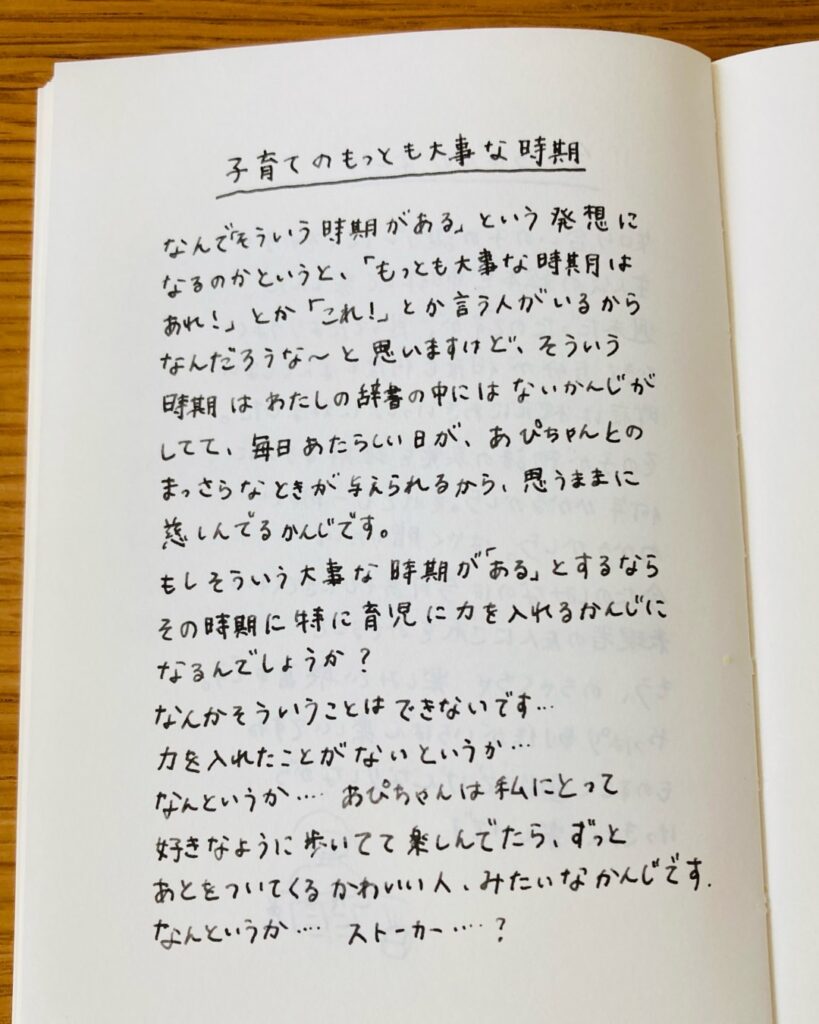 子育てのもっとも大事な時期
なんで「そういう時期がある」という発想に
なるのかというと、「もっとも大事な時期は
あれ!」とか「これ!」とか言う人がいるから
なんだろうな〜と思いますけど、そういう
時期はわたしの辞書の中にはないかんじが
してて、毎日あたらしい日が、あぴちゃんとの
まっさらなときが与えられるから、思うままに
慈しんでるかんじです。
もしそういう大事な時期が「ある」とするなら
その時期に特に育児に力を入れるかんじに
なるんでしょうか?
なんかそういうことはできないです…
力を入れたことがないというか…
なんというか…. あぴちゃんは私にとって
好きなように歩いてて楽しんでたら、ずっと
あとをついてくるかわいい人、みたいなかんじです.
なんというか…. ストーカー….?